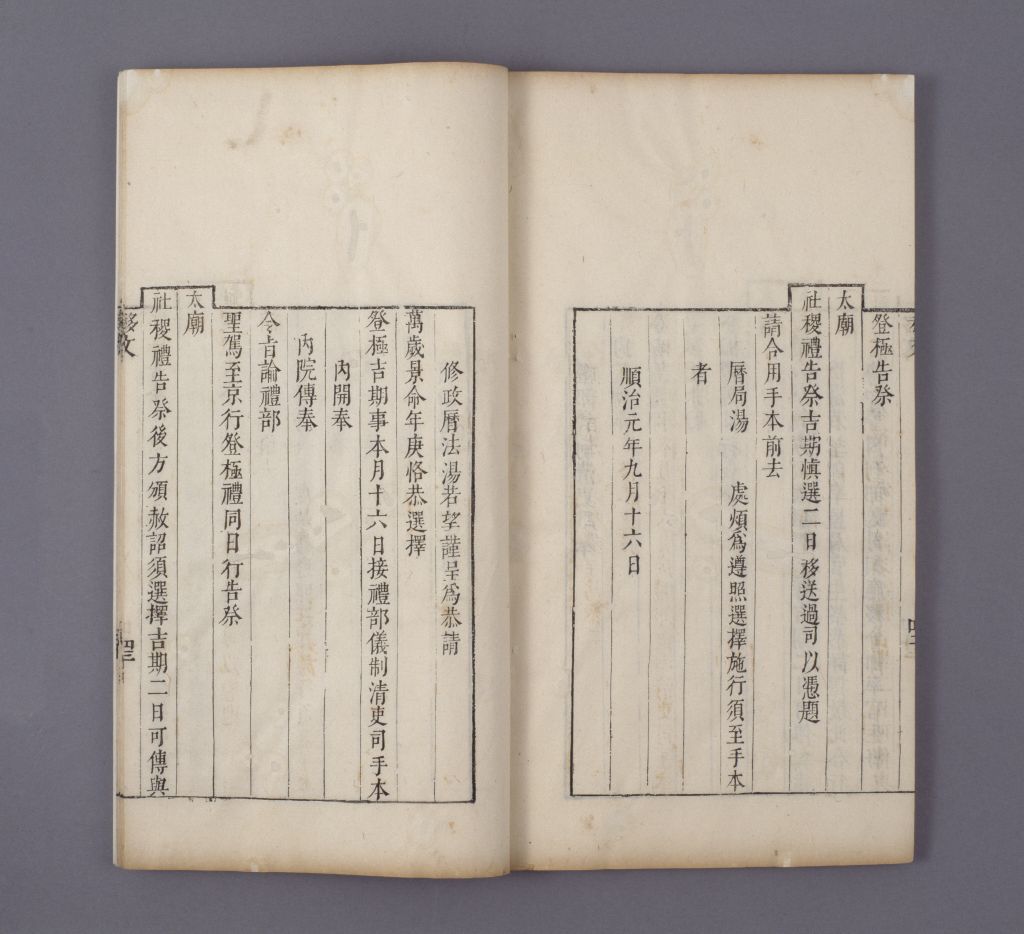 登極告祭
太廟
社稷禮告祭吉期慎選二日移送過司以憑題
請合用手本前去
曆局湯 處煩為遵照選擇施行須至手本
者
順治元年九月十六日
修政曆法湯若望謹呈為恭請
萬歲景命年庚恪恭選擇
登極吉期事本月十六日接禮部儀制清吏司手本
內開奉
內院傳奉
令旨諭禮部
聖駕至京行登極禮同日行告祭
太廟
社稷禮告祭後方頒赦詔須選擇吉期二日可傳與